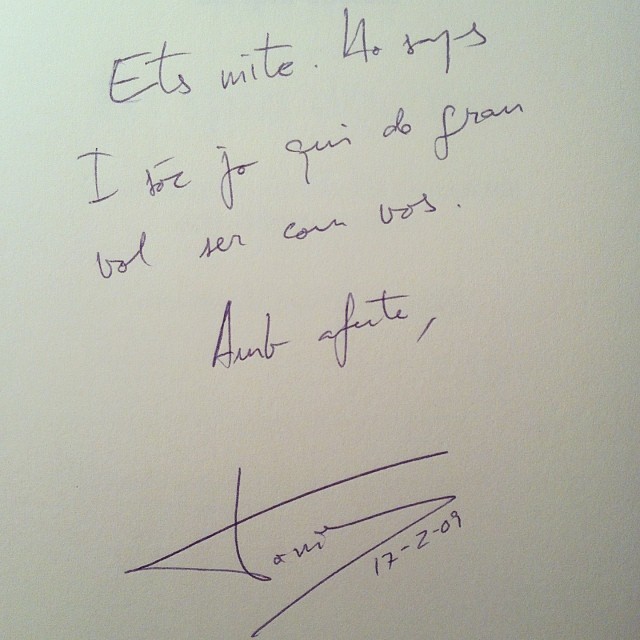 Ets mite. Ho saps
I sóc jo qui de gran
vol ser com vos.
Amb afecte,
17-2-09